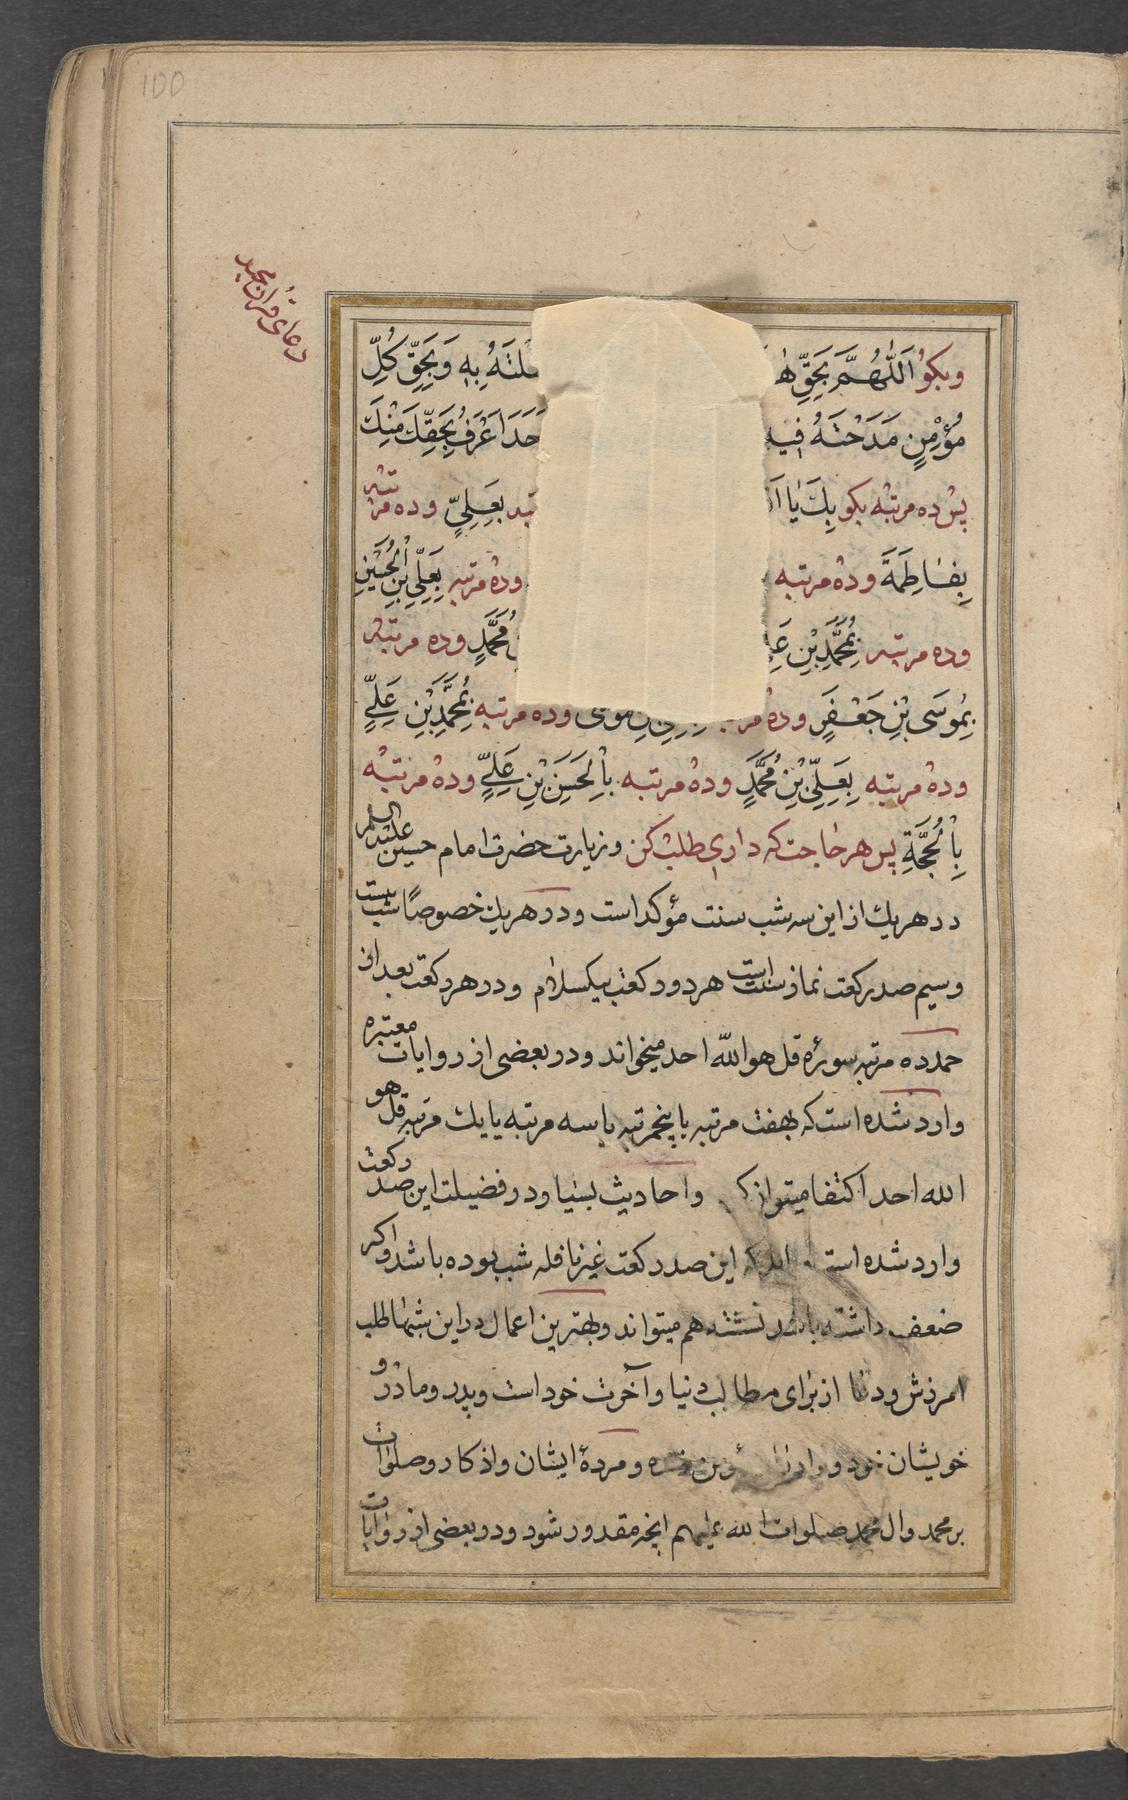 100
دعای قرآن مجید
وبکو اَللّٰهُمَّ بِحَقِّ وَبِحَقِّ كُلِّ
مُؤْمِنٍ مَدَحْتَهُ فِيهِ اَعْرَفُ بِحَقِّكَ مِنْكَ
پس ده مرتبه بکو بِكَ يٰا بِعَلِيٍّ وده مرتبه
بِفٰاطِمَةَ وده مرتبه وده مرتبه بِعَلِيِّ بْنِ الْحُسَيْنِ
وده مرتبه بِمُحَمَّدِ بْنِ مُحَمَّدٍ وده مرتبه
بِمُوسَى بْنِ جَعْفَرٍ وده وده مرتبه بِمُحَمَّدِ بْنِ عَلِيٍّ
وده مرتبه بِعَلِيِّ بْنِ مُحَمَّدٍ وده مرتبه بِالْحَسَنِ بْنِ عَلِيٍّ وده مرتبه
بِالْحُجَّةِ پس هر حاجت که داری طلب کن وزیارت حضرت امام حسین علیه السلم
در هریك از این سه شب سنت مؤکد است ودر هریك خصوصاً شب بیست
وسیم صد رکعت نماز سنت است هر دو رکعت بیکسلام ودر هر رکعت بعد از
حمد ده مرتبه سورهٔ قل هو الله احد میخواند ودر بعضی از روایات معتبره
وارد شده است که بهفت مرتبه یا پنجمرتبه یا سه مرتبه یا یك مرتبه قل هو
الله احد اکتفا میتوان واحادیث بسیار در فضیلت این صد رکعت
وارد شده است این صد رکعت غیر نافله شب بوده باشد واکر
ضعف داشته باشد نشسته هم میتواند وبهترین اعمال در این شبها طلب
امرزش ودعا از برای مطالب دنیا وآخرت خود است وپدر ومادر و
خویشان خود ومردهٔ ایشان واذکار وصلوات
بر محمد وال محمد صلوات الله علیهم انچه مقدور شود ودر بعضی از روایات